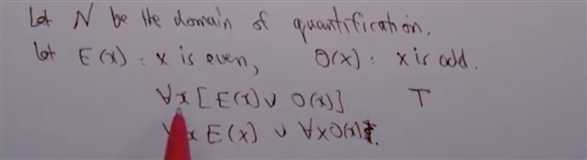 Let N be the domain of quantification.
let E(x) : x is even, O(x) : x is odd.
∀x [E(x) ∨ O(x)] T
∀x E(x) ∨ ∀x O(x)